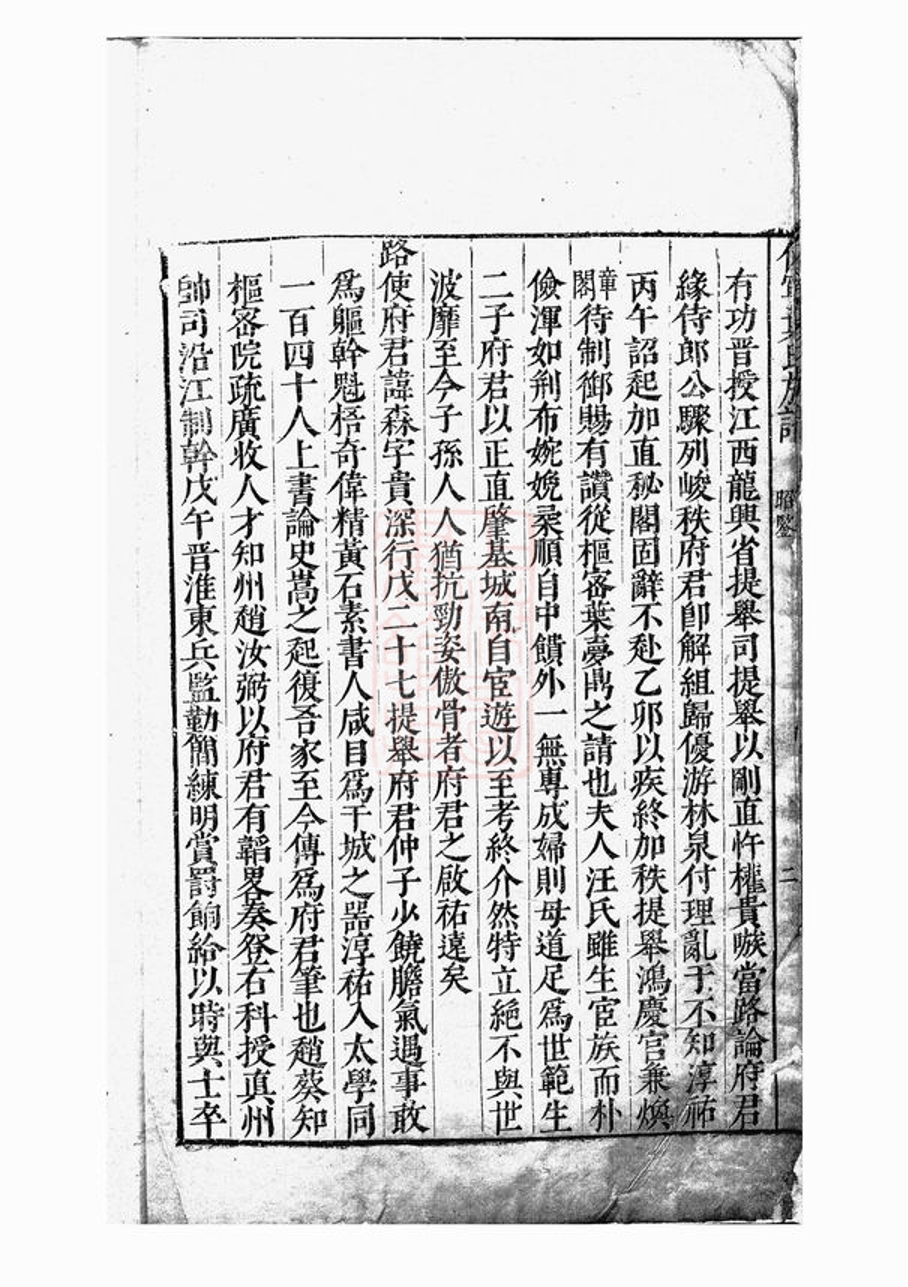 氏族譜 昭鑒 二
有功晋授江西龍興省提舉司提舉以剛直忤權貴嗾當路論府君
緣侍郎公驟列峻秩府君卽解組歸優游林泉付理亂于不知淳祐
丙午詔起加直秘閣固辭不赴乙卯以疾終加秩提舉鴻慶宮兼煥
章閣待制御賜有讚從樞宻葉夢鼎之請也夫人汪氏雖生宦族而朴
儉渾如荆布婉娩柔順自中饋外一無專成婦則母道足爲世範生
二子府君以正直肇基城南自宦遊以至考終介然特立絶不與世
波靡至今子孫人人猶抗勁姿傲骨者府君之啟祐遠矣
路使府君諱森字貴深行戊二十七提舉府君仲子少饒膽氣遇事敢
爲軀幹魁梧奇偉精黃石素書人咸目爲干城之噐淳祐入太學同
一百四十八上書論史嵩之起復吾家至今傳爲府君筆也趙葵知
樞宻院疏廣收人才知州趙汝弼以府君有韜畧奏登右科授真州
帥司沿江制幹戊午晋淮東兵監勤簡練明賞罸餉給以時與士卒